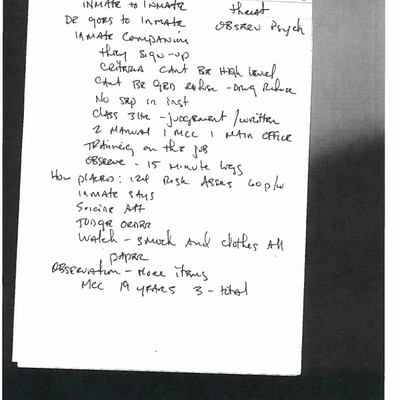 INMATE to INMATE threat
DR GOES to INMATE OBSERV Psych
INMATE COMPANION
they SIGN-UP
CRITERIA CANT BE HIGH level
CANT BE GED REFUSE - DRUG REFUSE
NO SEP IN INST
CLASS 3 Hr - JUDGEMENT / WRITTEN
2 MANUAL 1 MCC 1 MAIN OFFICE
TRAINING ON the JOB
OBSERVE - 15 MINUTE LOGS
How PLACED: Risk ASSES
INMATE SAYS
SUICIDE ATT
JUDGE ORDER
WATCH - SMOCK AND Clothes All
PAPER
OBSERVATION - MORE items
MCC 19 YEARS 3 - total